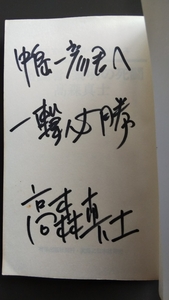 一彦君へ
一撃必勝
高森真士